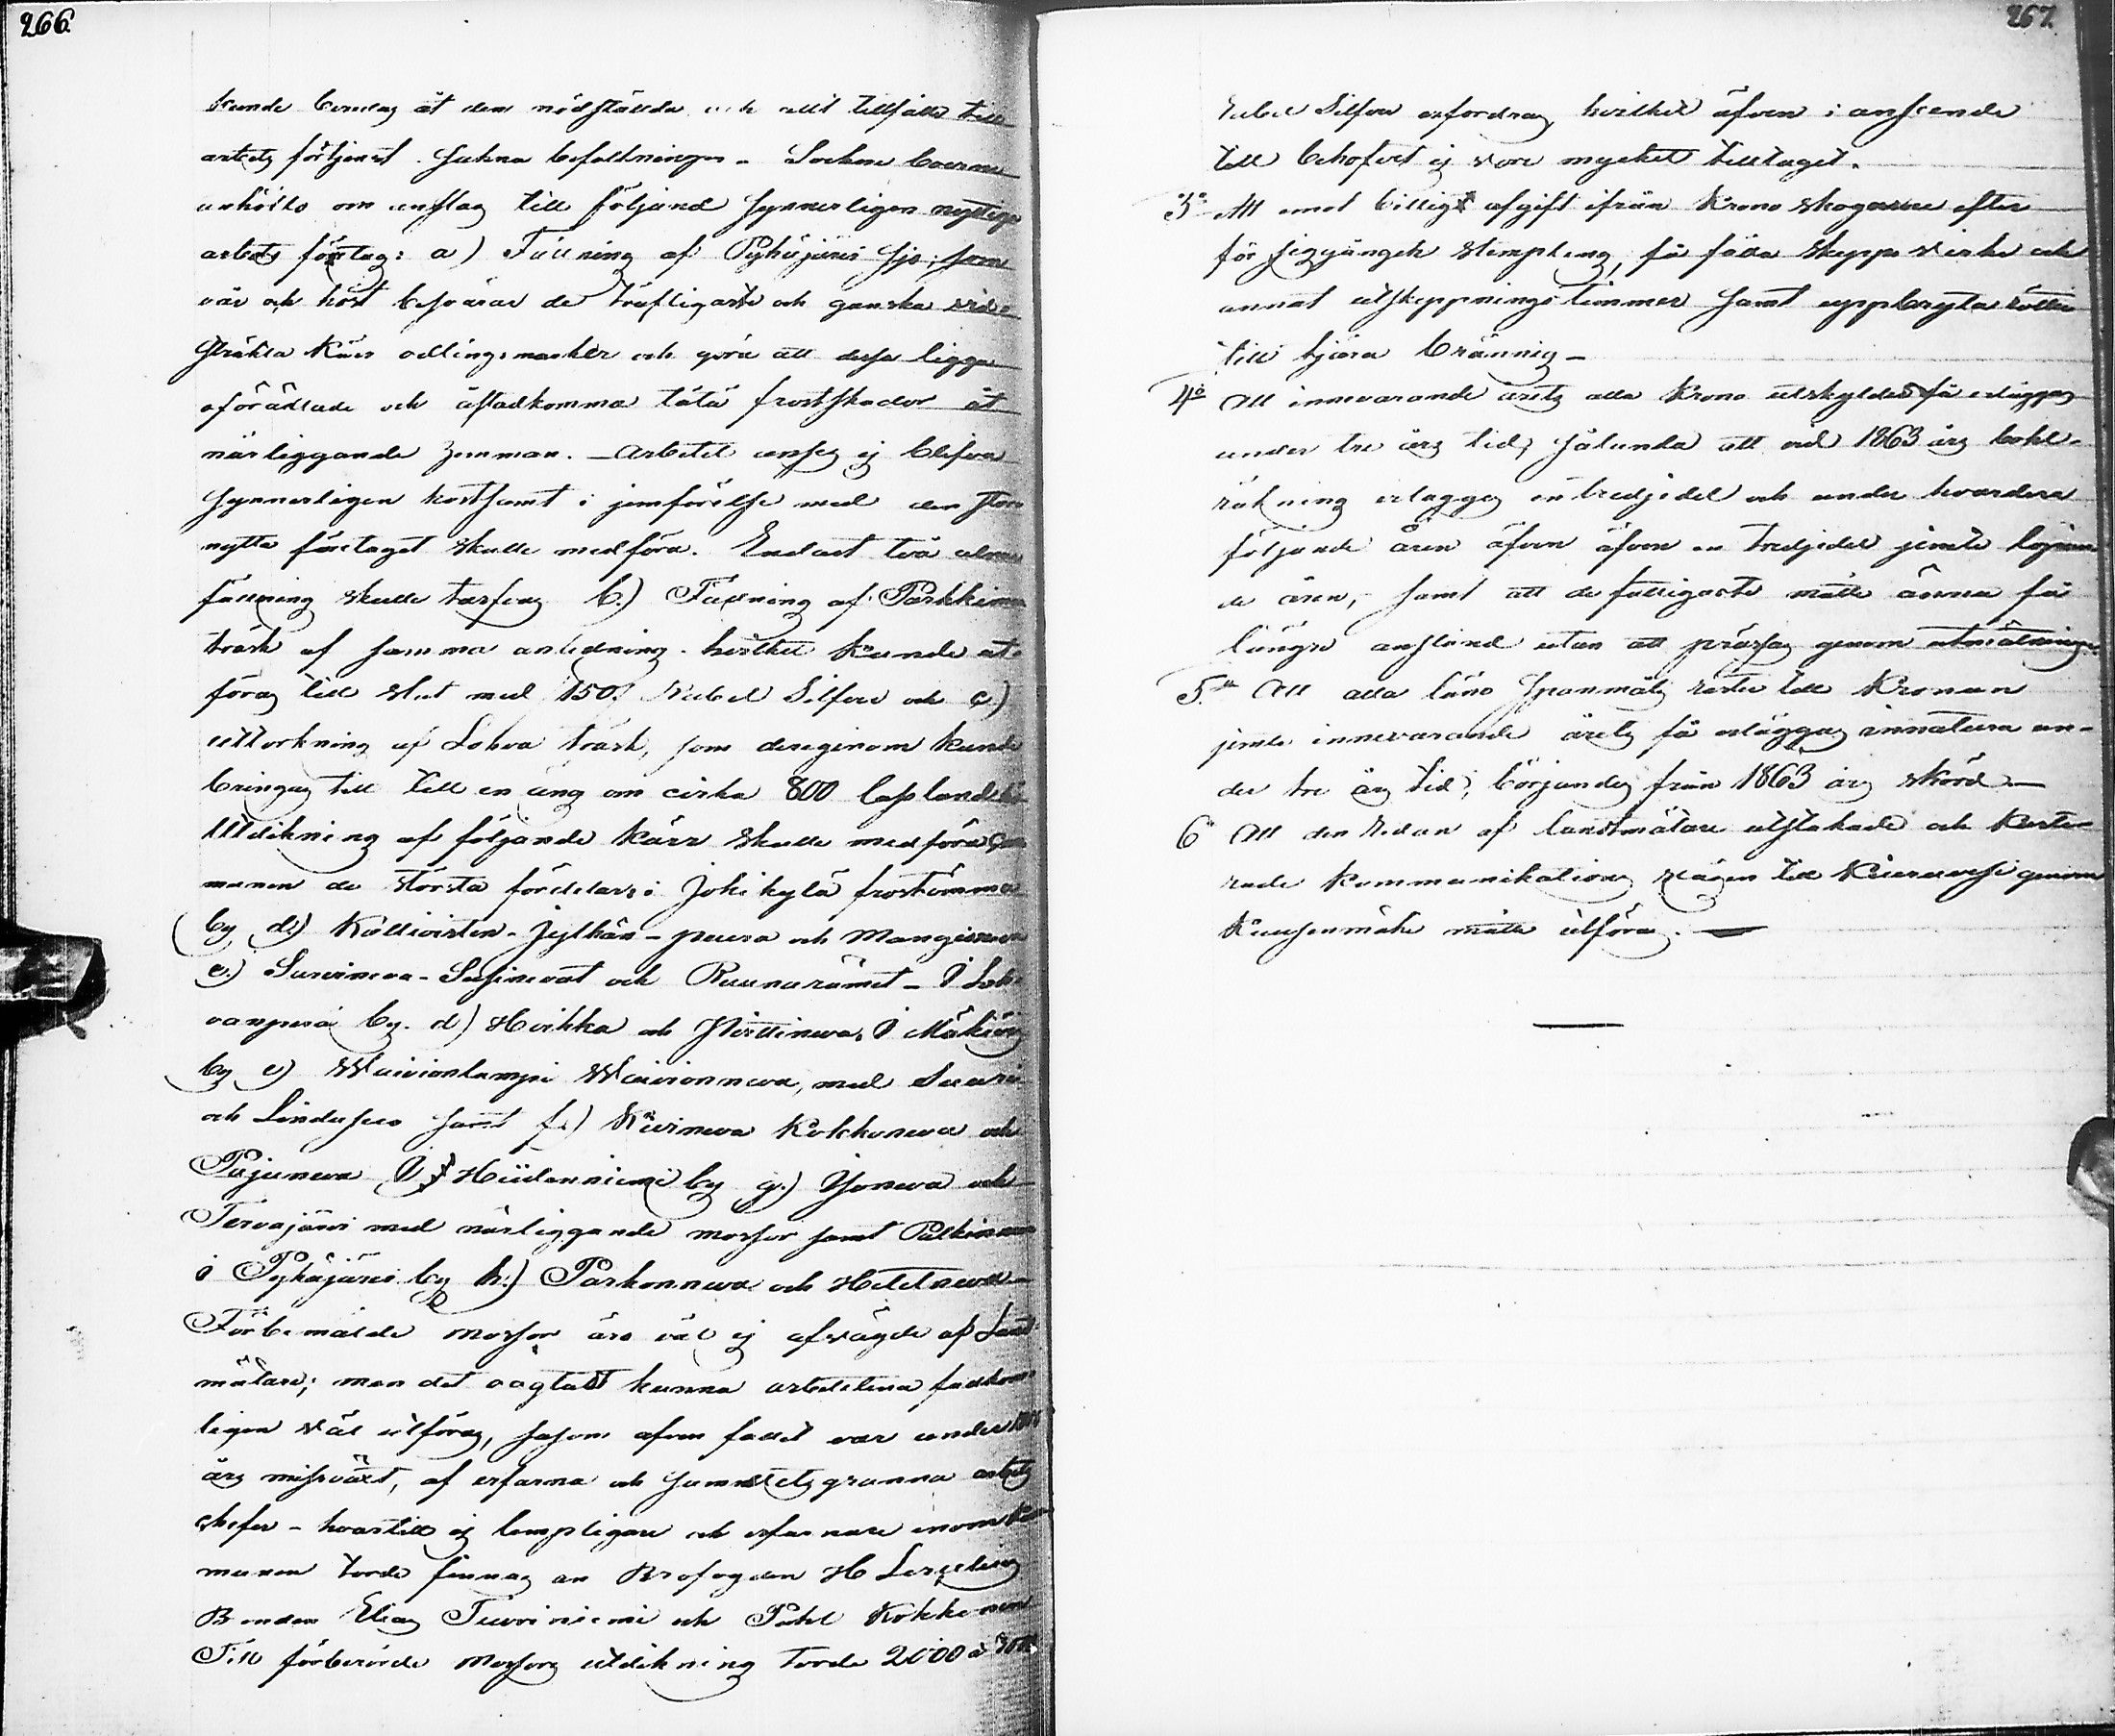 266.
kunde beredas åt den nödställda och allt tillfälle till
arbets förtjenst sakna befolkningen. Sockne boerne
anhöllo om anslag till följand synnerligen nyttiga
arbets företag: a) Fällning af Pyhäjärvi sjö; som
vår och höst besvärar de träfligaste och ganska vid-
sträkta Kärr odlingsmarker och göra att dessa ligga
oförädlade och åstadkomma täta frostskador åt
närliggande hemman. Arbetet anses ej blifva
synnerligen kostsamt i jemförelse med den stora
nytta företaget skulle medföra. Endast två alnars
fällning skulle tarfvas b.) Fällning af Parkkima
träsk af samma anledning. hvilket kunde ut-
föras till slut med 150. Rubel Silfver och c)
uttorkning af Lohva träsk, som derigenom kunde
bringas till till en äng om cirka 800 lass land hö
Utdikning af följande kärr skulle medföra Kom
munen de största fördelar: i Jokikylä frostömma
by d) Kallioisten-Jylhän-peura och Mangisneva
e.) Surineva-Susinevat och Ruunarämet - I Loh-
vanperä by. d) Hoikka och Hirvineva. I Mäkiöis
by e) Waivionlampi Waivionneva, med Suuri
och Lindusuo samt f.) Kivineva Kokkoneva och
Pajuneva I Hiidenniemi by g.) Isoneva och
Tervajärvi med närliggande mossor samt Pälkineva
i Pyhäjärvi by h.) Parkonneva och Heteneva
Förbemälde mossor äro väl ej afvägde af Land-
mätare; men det oagtadt kunna arbetetena fullkom-
ligen väl utföras, såsom äfven fallet var under
års missväxt, af erfarna och samvetsgranna arbets
chefer - hvartill ej lämpligare och erfarnare inom Kom
munen torde finnas än Brofogden H
Bonden Elias Tuoriniemi och Pahl Kokkonen
Till förberörde mossors utdikning torde 2000 à
267.
Rubel Silfver erfordras, hvilket äfven i anseende
till behofvet ej vore mycket tilltaget.
3o Att emot billigt afgift ifrån Krono skogarne efter
för siggånget stempling, få fälla Skepps virke och
annat utskeppnings timmer samt uppbryta rötter
till tjära bränning -
4o Att innevarande årets alla Krono utskylder få erläggas
under tre års tid, sålunda att vid 1863 års bohl-
räkning erlägges en tredjedel och under hvardera
följande åren äfven äfven en tredjedel jemte
de åren, samt att de fattigaste måtte ännu få
längre anstånd utan att prässas genom utmätningar
5. Att alla låne Spanmåls rester till Kronan
jemte innevarande årets få erläggas innatura un-
der tre års tid, börjandes från 1863 års skörd -
6o Att den redan af landtmätare utstakade och Karte-
rade Kommunikations vägen till Kiuruvesi genom
Ruusenmäki måtte utföras. -